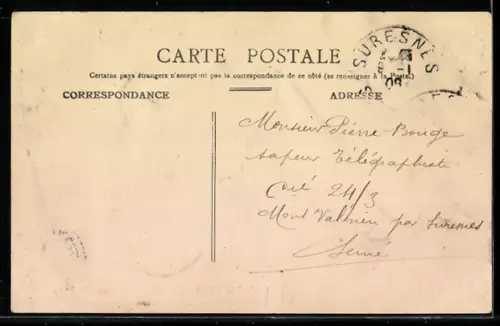 CARTE POSTALE
Certains pays étrangers n'acceptent pas la correspondance de ce côté (se renseigner à la Poste)
CORRESPONDANCE
ADRESSE
SURESNES
Monsieur Pierre Bouge
sapeur Télégraphiste
24/3
Mont Valérien par Suresnes
Seine